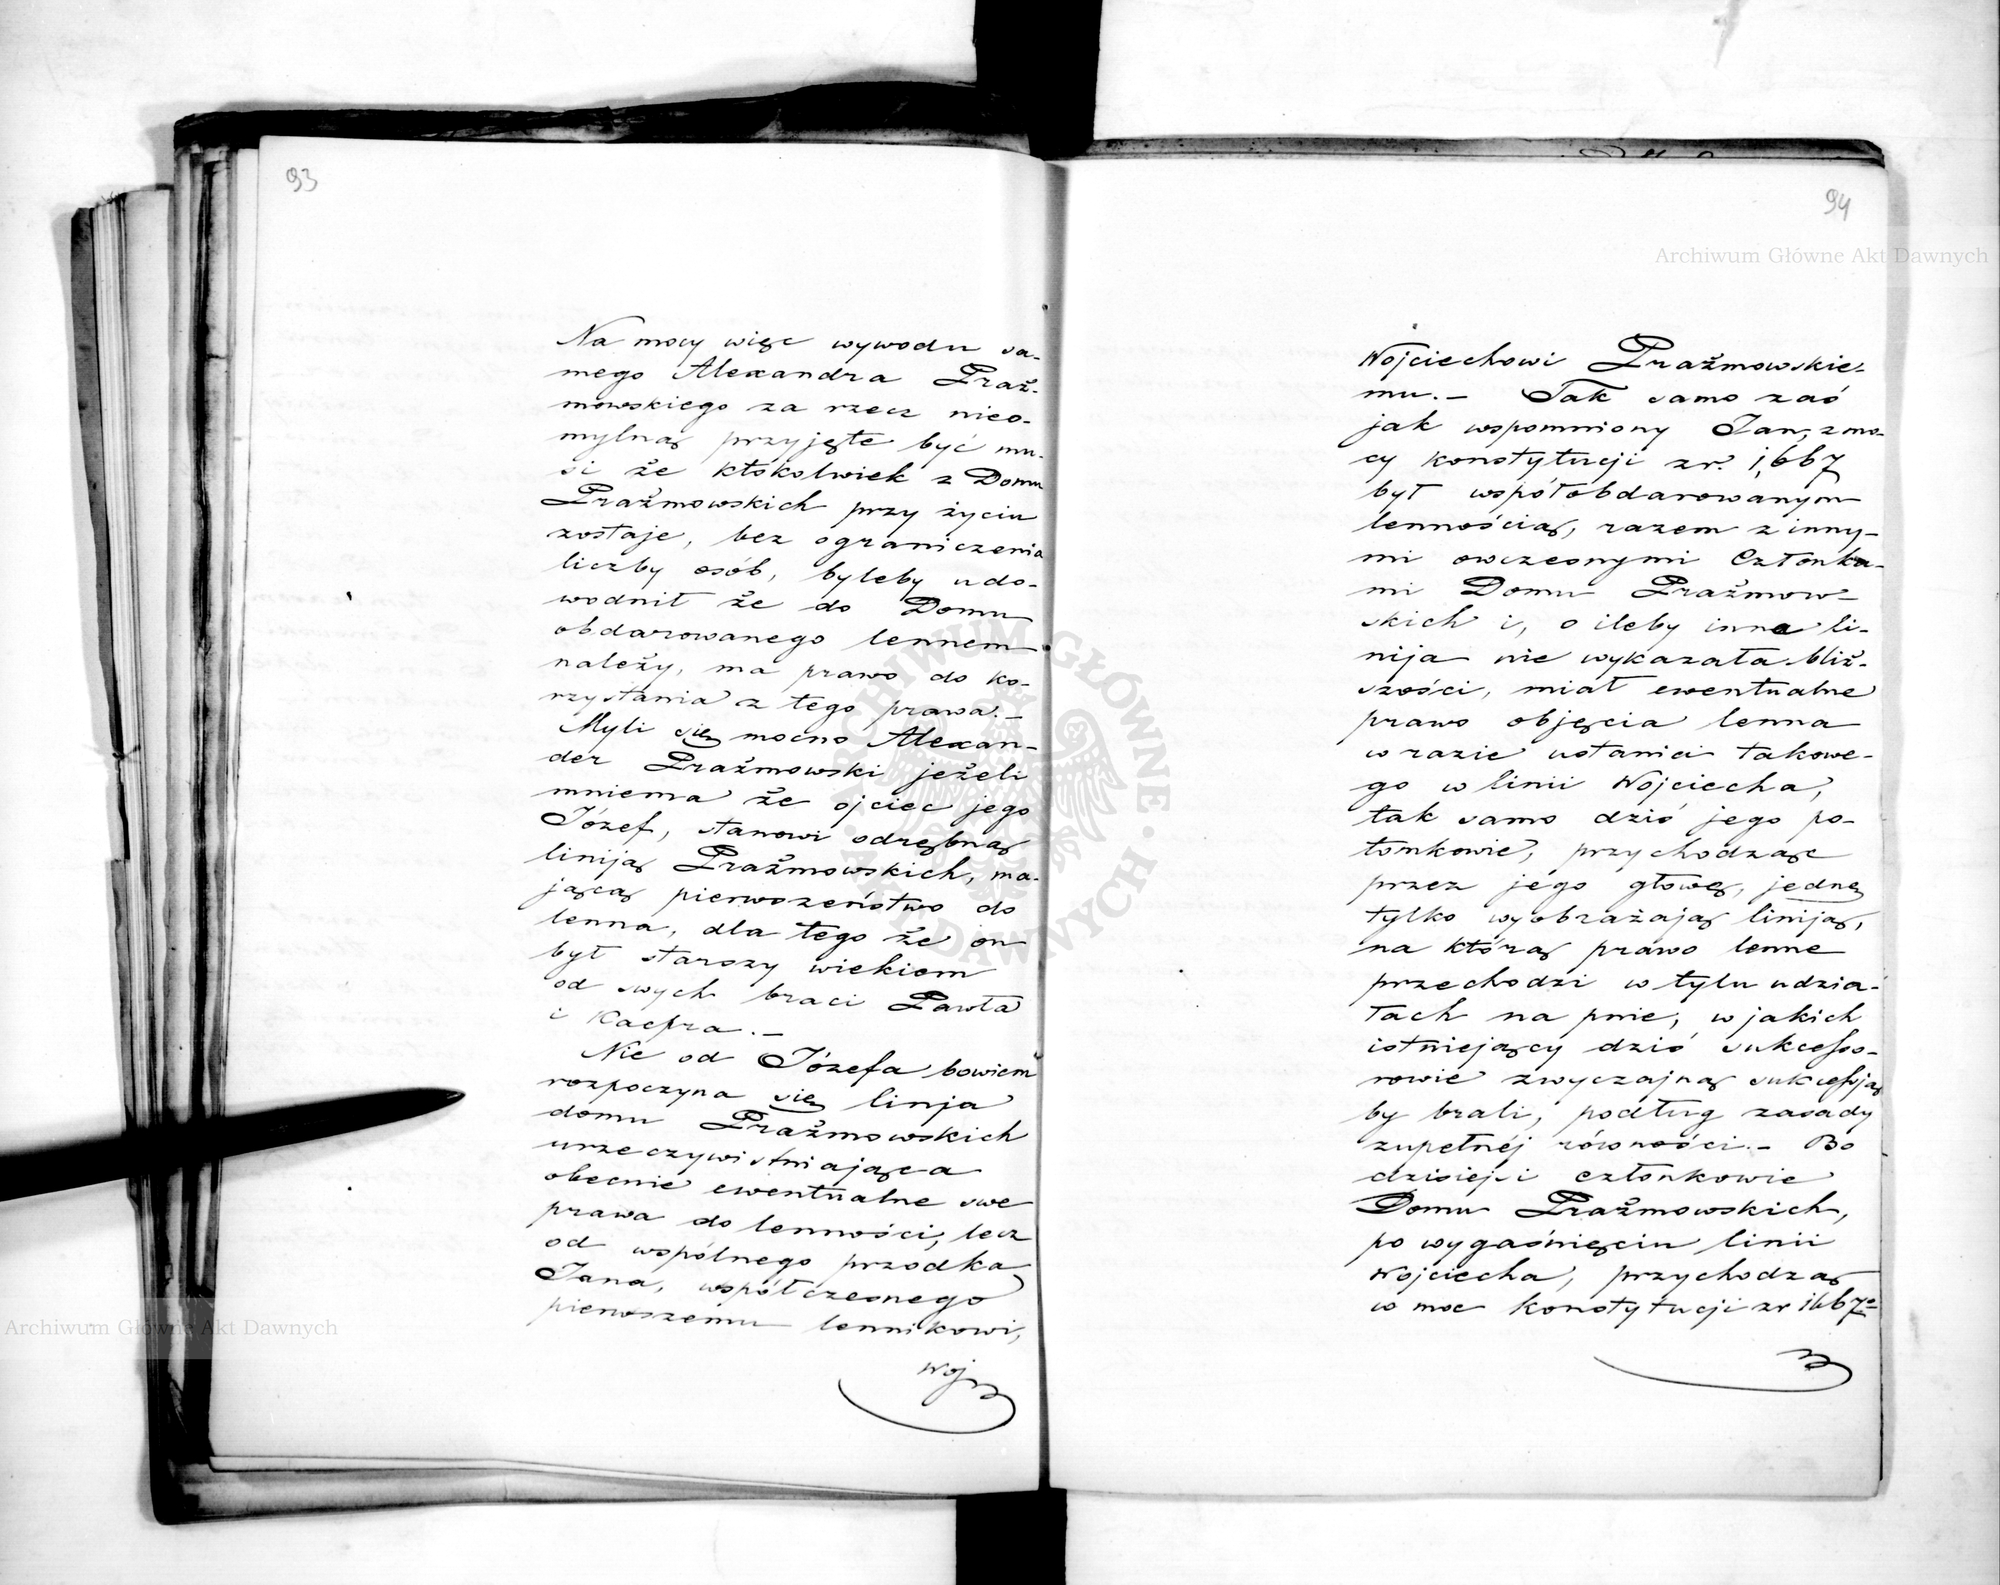 93
Na mocy więc wywodu sa-
mego Alexandra Praż-
mowskiego za rzecz nieo-
mylną przyjęte być mu-
si że ktokolwiek z Domu
Prażmowskich przy życiu
zostaje, bez ograniczenia
liczby osób, byleby udo-
wodnił że do Domu
obdarowanego lennem
należy, ma prawo do ko-
rzystania z tego prawa.-
Myli się mocno Alexan-
der Prażmowski jeżeli
mniema że ojciec jego
Józef, stanowi odrębną
liniją Prażmowskich, ma-
jącą pierwszeństwo do
lenna, dla tego że on
był starszy wiekiem
od swych braci Pawła
i Kacpra.-
Nie od Józefa bowiem
rozpoczyna się linja
domu Prażmowskich
urzeczywistniająca
obecnie ewentualne swe
prawa do lenności, lecz
od wspólnego przodka
Jana, współczesnego
pierwszemu lennikowi,
Woj
94
Wojciechowi Prażmowskie-
mu.- Tak samo zaś
jak wspomniony Jan, z mo-
cy konstytucji z r. 1667
był współobdarowanym
lennością, razem z inny-
mi owczesnymi Członka-
mi Domu Prażmow-
skich i, o ileby inna li-
nija nie wykazała bliż-
szości, miał ewentualne
prawo objęcia lenna
w razie ustania takowe-
go w linii Wojciecha,
tak samo dziś jego po-
tomkowie, przychodząc
przez jego głowę, jedną
tylko wyobrażają liniją,
na którą prawo lenne
przechodzi w tylu udzia-
łach na pnie, w jakich
istniejący dziś sukcesso-
rowie zwyczajną sukcessją
by brali, podług zasady
zupełnéj równości.- Bo
dzisiejsi członkowie
Domu Prażmowskich,
po wygaśnięciu linii
Wojciecha, przychodzą
w moc konstytucji z r 1667º
Archiwum Główne Akt Dawnych
Archiwum Główne Akt Dawnych
ARCHIWUM GŁÓWNE AKT DAWNYCH